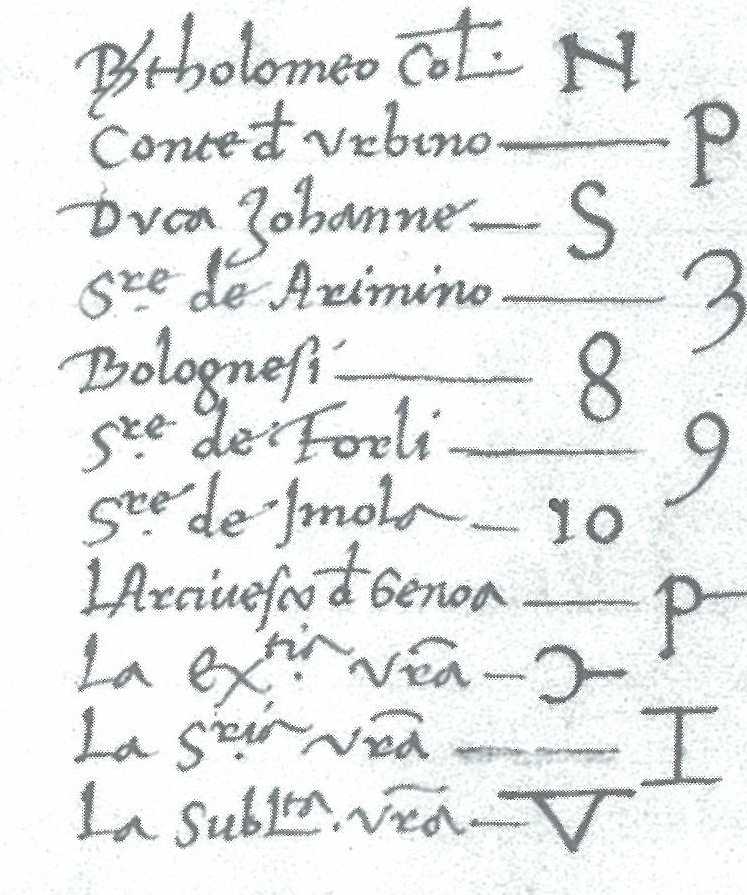 Bartholomeo Col. N
Conte d Vrbino — P
Duca Zohanne — S
Sre de Arimino — 3
Bolognesi — 8
Sre de Forli — 9
Sre de Imola — 10
L Arciuesco d Genoa — P
La extia vra —
La Sria vra — I
La Sublta. vra —